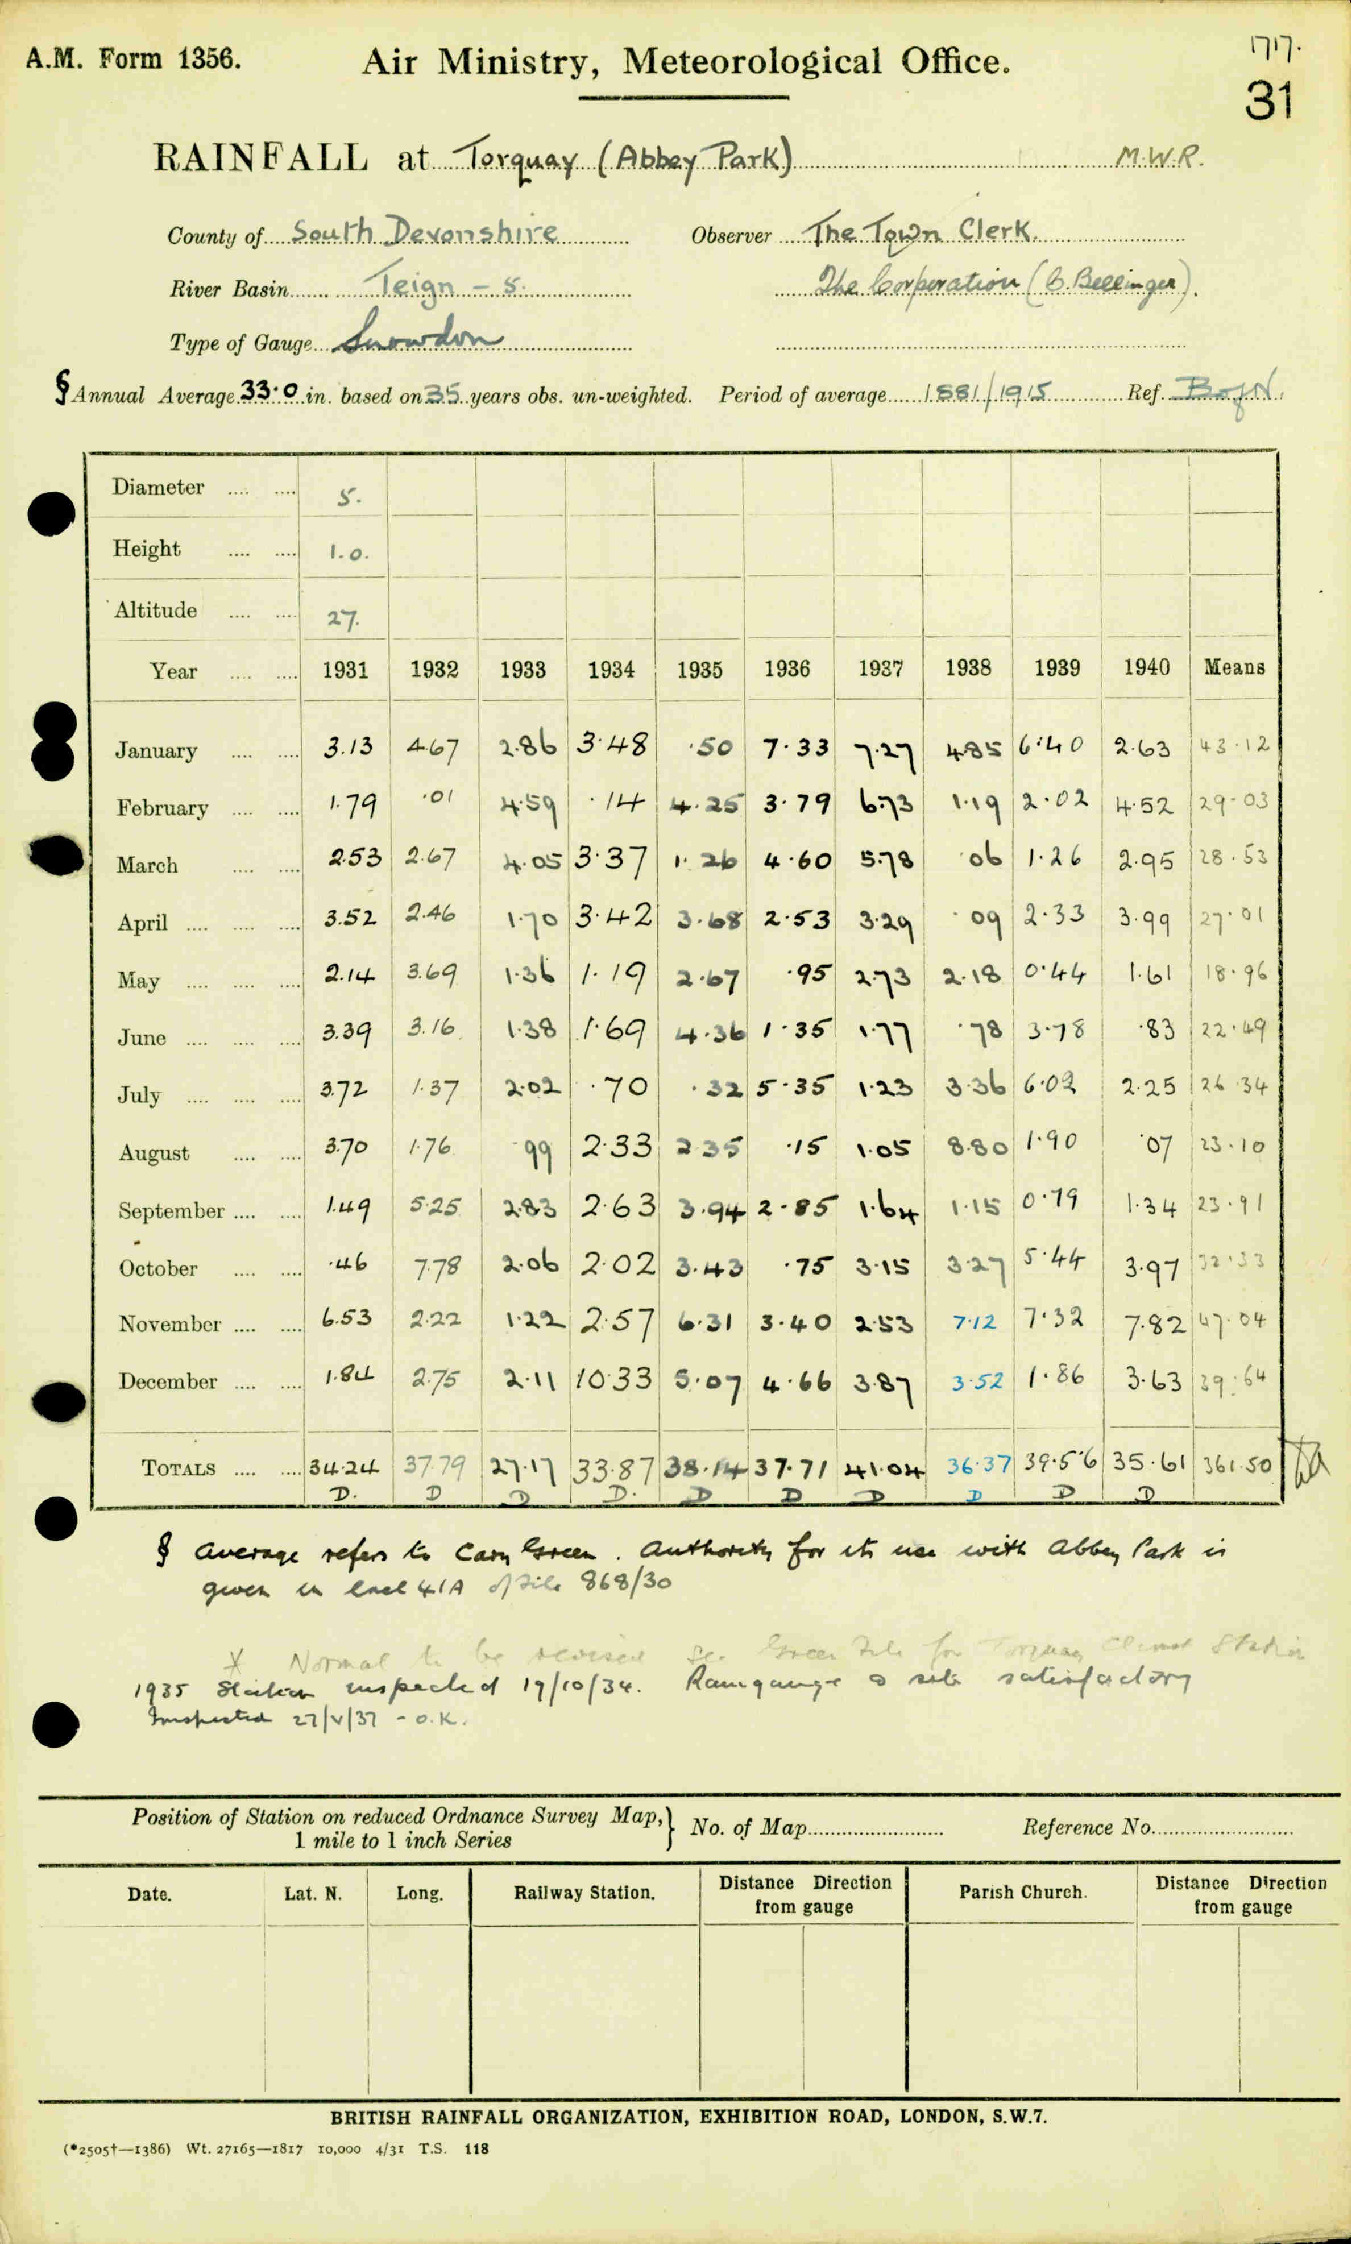 A.M. Form 1356.
Air Ministry, Meteorological Office.
1717.
31
RAINFALL at Torquay (Abbey Park) M.W.R.
County of South Devonshire Observer The Town Clerk.
River Basin Teign - 5. The Corporation (C. Bellinger).
Type of Gauge Snowdon
§ Annual Average 33·0 in. based on 35 years obs. un-weighted. Period of average 1881/1915 Ref. B of N.
Diameter 5.
Height 1.0.
Altitude 27.
Year 1931 1932 1933 1934 1935 1936 1937 1938 1939 1940 Means
January 3.13 4.67 2.86 3.48 .50 7.33 7.27 4.85 6.40 2.63 43.12
February 1.79 .01 4.59 .14 4.25 3.79 6.73 1.19 2.02 4.52 29.03
March 2.53 2.67 4.05 3.37 1.26 4.60 5.78 06 1.26 2.95 28.53
April 3.52 2.46 1.70 3.42 3.68 2.53 3.29 .09 2.33 3.99 27.01
May 2.14 3.69 1.36 1.19 2.67 .95 2.73 2.18 0.44 1.61 18.96
June 3.39 3.16 1.38 1.69 4.36 1.35 1.77 .78 3.78 .83 22.49
July 3.72 1.37 2.02 .70 .32 5.35 1.23 3.36 6.02 2.25 26.34
August 3.70 1.76 .99 2.33 2.35 .15 1.05 8.80 1.90 .07 23.10
September 1.49 5.25 2.83 2.63 3.94 2.85 1.64 1.15 0.79 1.34 23.91
October .46 7.78 2.06 2.02 3.43 .75 3.15 3.27 5.44 3.97 32.33
November 6.53 2.22 1.22 2.57 6.31 3.40 2.53 7.12 7.32 7.82 47.04
December 1.84 2.75 2.11 10.33 5.07 4.66 3.87 3.52 1.86 3.63 39.64
TOTALS 34.24 37.79 27.17 33.87 38.14 37.71 41.04 36.37 39.56 35.61 361.50
D. D D D. D D D D D D
§ Average refers to Cary Green. Authority for its use with Abbey Park is
given in encl 41A of File 868/30
* Normal to be revised see Green File for Torquay Climat Station
1935 Station inspected 19/10/34. Raingauge & site satisfactory
Inspected 27/V/37 - O.K.
Position of Station on reduced Ordnance Survey Map, } No. of Map Reference No.
1 mile to 1 inch Series
Date. Lat. N. Long. Railway Station. Distance Direction from gauge Parish Church. Distance Direction from gauge
BRITISH RAINFALL ORGANIZATION, EXHIBITION ROAD, LONDON, S.W.7.
(*2505†—1386) Wt. 27165—1817 10,000 4/31 T.S. 118